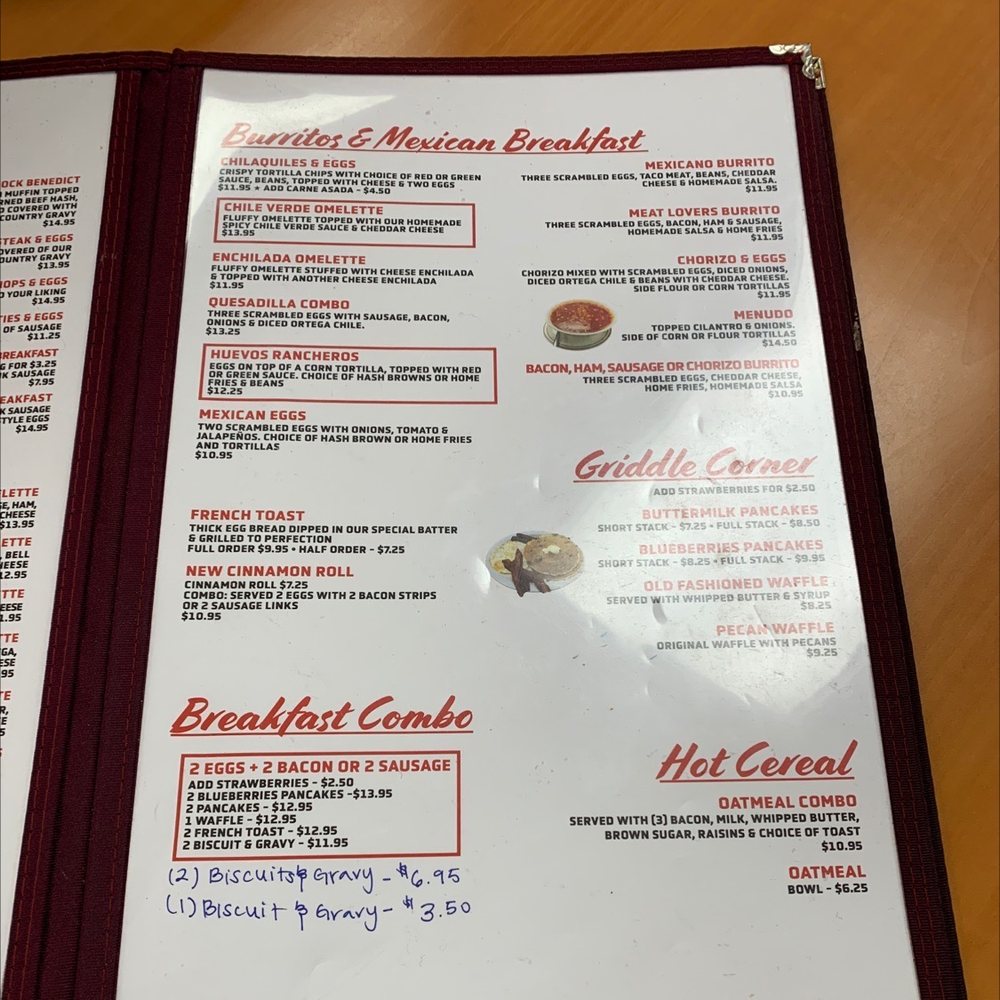 OCK BENEDICT
MUFFIN TOPPED
RNED BEEF HASH,
D COVERED WITH
COUNTRY GRAVY
$14.95
STEAK & EGGS
OVERED OF OUR
OUNTRY GRAVY
$13.95
HOPS & EGGS
O YOUR LIKING
$14.95
TIES & EGGS
OF SAUSAGE
$11.25
BREAKFAST
G FOR $3.25
K SAUSAGE
$7.95
EAKFAST
K SAUSAGE
STYLE EGGS
$14.95
ELETTE
SE, HAM,
CHEESE
$13.95
ETTE
, BELL
HEESE
12.95
ETTE
EESE
1.95
TTE
GA,
ESE
95
TE
R,
E
5
Burritos & Mexican Breakfast
CHILAQUILES & EGGS
CRISPY TORTILLA CHIPS WITH CHOICE OF RED OR GREEN
SAUCE, BEANS, TOPPED WITH CHEESE & TWO EGGS
$11.95 ★ ADD CARNE ASADA - $4.50
CHILE VERDE OMELETTE
FLUFFY OMELETTE TOPPED WITH OUR HOMEMADE
SPICY CHILE VERDE SAUCE & CHEDDAR CHEESE
$13.95
ENCHILADA OMELETTE
FLUFFY OMELETTE STUFFED WITH CHEESE ENCHILADA
& TOPPED WITH ANOTHER CHEESE ENCHILADA
$11.95
QUESADILLA COMBO
THREE SCRAMBLED EGGS WITH SAUSAGE, BACON,
ONIONS & DICED ORTEGA CHILE.
$13.25
HUEVOS RANCHEROS
EGGS ON TOP OF A CORN TORTILLA, TOPPED WITH RED
OR GREEN SAUCE. CHOICE OF HASH BROWNS OR HOME
FRIES & BEANS
$12.25
MEXICAN EGGS
TWO SCRAMBLED EGGS WITH ONIONS, TOMATO &
JALAPEÑOS. CHOICE OF HASH BROWN OR HOME FRIES
AND TORTILLAS
$10.95
MEXICANO BURRITO
THREE SCRAMBLED EGGS, TACO MEAT, BEANS, CHEDDAR
CHEESE & HOMEMADE SALSA.
$11.95
MEAT LOVERS BURRITO
THREE SCRAMBLED EGGS, BACON, HAM & SAUSAGE,
HOMEMADE SALSA & HOME FRIES
$11.95
CHORIZO & EGGS
CHORIZO MIXED WITH SCRAMBLED EGGS, DICED ONIONS,
DICED ORTEGA CHILE & BEANS WITH CHEDDAR CHEESE.
SIDE FLOUR OR CORN TORTILLAS
$11.95
MENUDO
TOPPED CILANTRO & ONIONS.
SIDE OF CORN OR FLOUR TORTILLAS
$14.50
BACON, HAM, SAUSAGE OR CHORIZO BURRITO
THREE SCRAMBLED EGGS, CHEDDAR CHEESE,
HOME FRIES, HOMEMADE SALSA
$10.95
FRENCH TOAST
THICK EGG BREAD DIPPED IN OUR SPECIAL BATTER
& GRILLED TO PERFECTION
FULL ORDER $9.95 • HALF ORDER - $7.25
NEW CINNAMON ROLL
CINNAMON ROLL $7.25
COMBO: SERVED 2 EGGS WITH 2 BACON STRIPS
OR 2 SAUSAGE LINKS
$10.95
Griddle Corner
ADD STRAWBERRIES FOR $2.50
BUTTERMILK PANCAKES
SHORT STACK - $7.25 • FULL STACK - $8.50
BLUEBERRIES PANCAKES
SHORT STACK - $8.25 • FULL STACK - $9.95
OLD FASHIONED WAFFLE
SERVED WITH WHIPPED BUTTER & SYRUP
$8.25
PECAN WAFFLE
ORIGINAL WAFFLE WITH PECANS
$9.25
Breakfast Combo
2 EGGS + 2 BACON OR 2 SAUSAGE
ADD STRAWBERRIES - $2.50
2 BLUEBERRIES PANCAKES -$13.95
2 PANCAKES - $12.95
1 WAFFLE - $12.95
2 FRENCH TOAST - $12.95
2 BISCUIT & GRAVY - $11.95
(2) Biscuits & Gravy - $6.95
(1) Biscuit & Gravy - $3.50
Hot Cereal
OATMEAL COMBO
SERVED WITH (3) BACON, MILK, WHIPPED BUTTER,
BROWN SUGAR, RAISINS & CHOICE OF TOAST
$10.95
OATMEAL
BOWL - $6.25